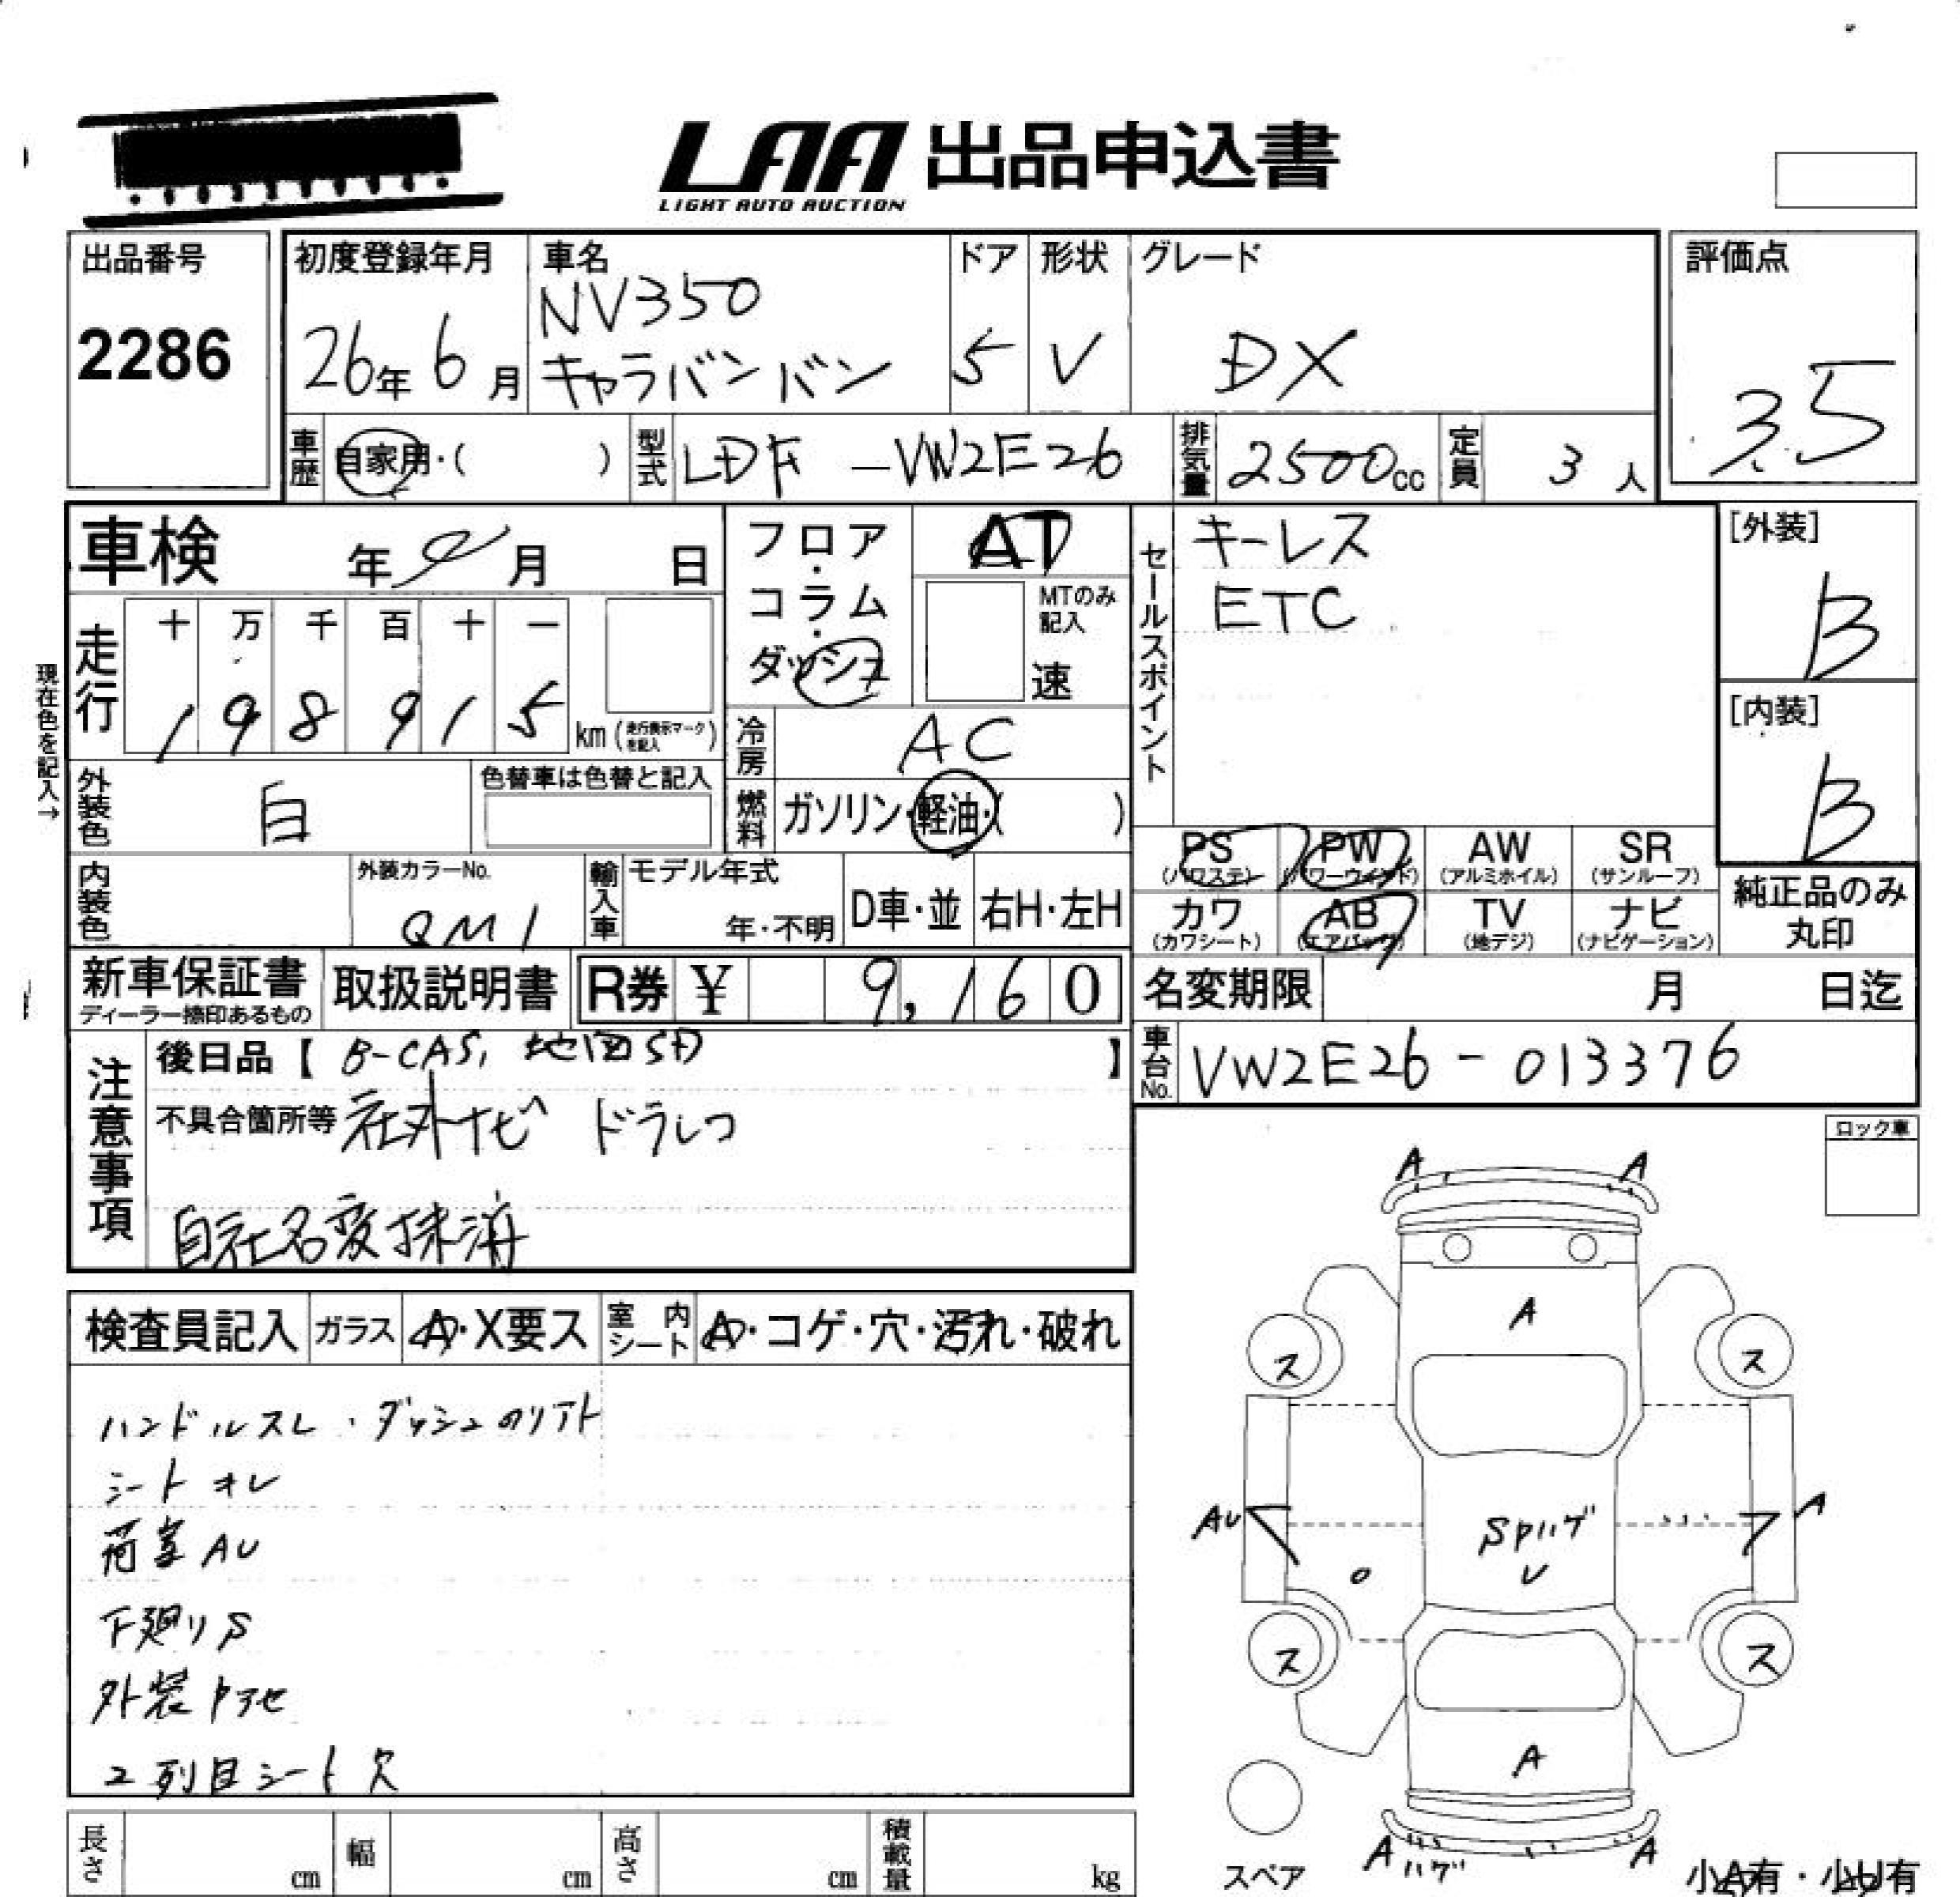 LAA 出品申込書
LIGHT AUTO AUCTION
出品番号
2286
初度登録年月
26年 6月
車名
NV350
キャラバンバン
ドア
5
形状
V
グレード
DX
評価点
3.5
車歴 自家用・( )
型式 LDF-VW2E26
排気量 2500cc
定員 3人
車検 年 月 日
フロア・コラム・ダッシュ
AT
MTのみ記入
速
セールスポイント
キーレス
ETC
[外装]
B
[内装]
B
現在色を記入→
走行
十 万 千 百 十 一
1 9 8 9 1 5 km (走行表示マークを記入)
冷房 AC
燃料 ガソリン・軽油・( )
外装色 白
色替車は色替と記入
内装色
外装カラーNo.
QM1
輸入車
モデル年式
年・不明
D車・並
右H・左H
PS (パワステ)
PW (パワーウィンド)
AW (アルミホイル)
SR (サンルーフ)
カワ (カワシート)
AB (エアバッグ)
TV (地デジ)
ナビ (ナビゲーション)
純正品のみ
丸印
新車保証書
ディーラー捺印あるもの
取扱説明書
R券 ¥ 9,160
名変期限 月 日迄
車台No. VW2E26-013376
注意事項
後日品【 B-CAS, 地図SD 】
不具合箇所等 社外ナビ ドラレコ
自社名変抹済
ロック車
検査員記入
ガラス A・X要ス
室内シート A・コゲ・穴・汚れ・破れ
ハンドルスレ・ダッシュのリアト
シートオレ
荷室AU
下廻りS
2列目シート欠
A A
A
ス ス
AU A
Spハゲ
U
ス ス
A
A ハゲ A
スペア
小A有・小U有
長さ cm
幅 cm
高さ cm
積載量 kg